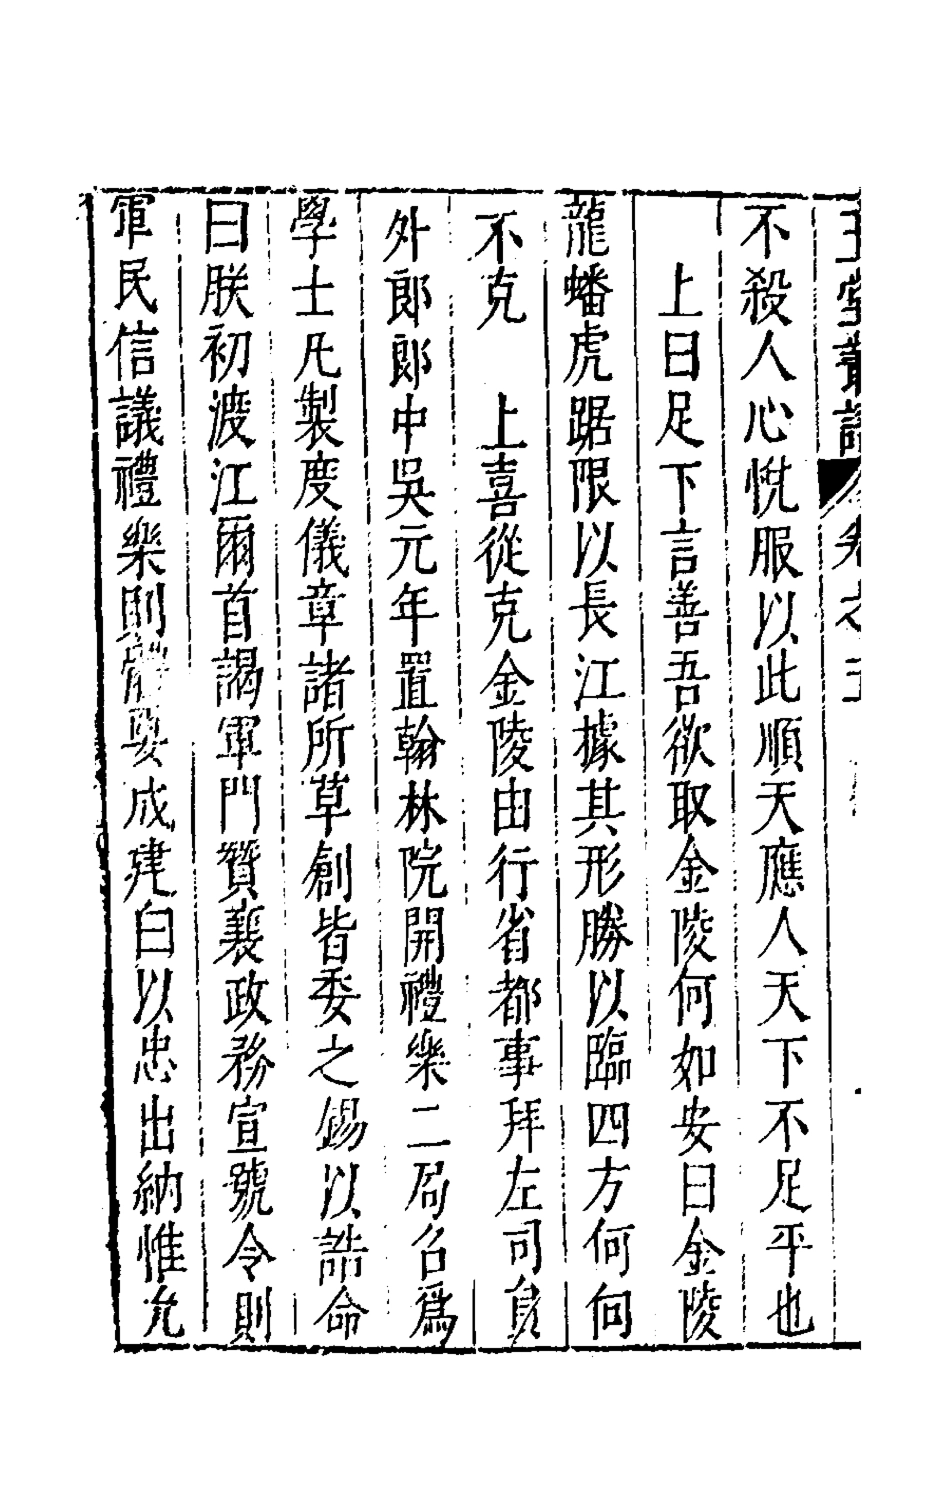 玉堂叢語 卷之五
不殺人心悅服以此順天應人天下不足平也
上曰足下言善吾欲取金陵何如安曰金陵
龍蟠虎踞限以長江據其形勝以臨四方何向
不克 上喜從克金陵由行省都事拜左司員
外郎郎中吳元年置翰林院開禮樂二局召爲
學士凡製度儀章諸所草創皆委之錫以誥命
曰朕初渡江爾首謁軍門贊襄政務宣號令則
軍民信議禮樂則體要成建白以忠出納惟允